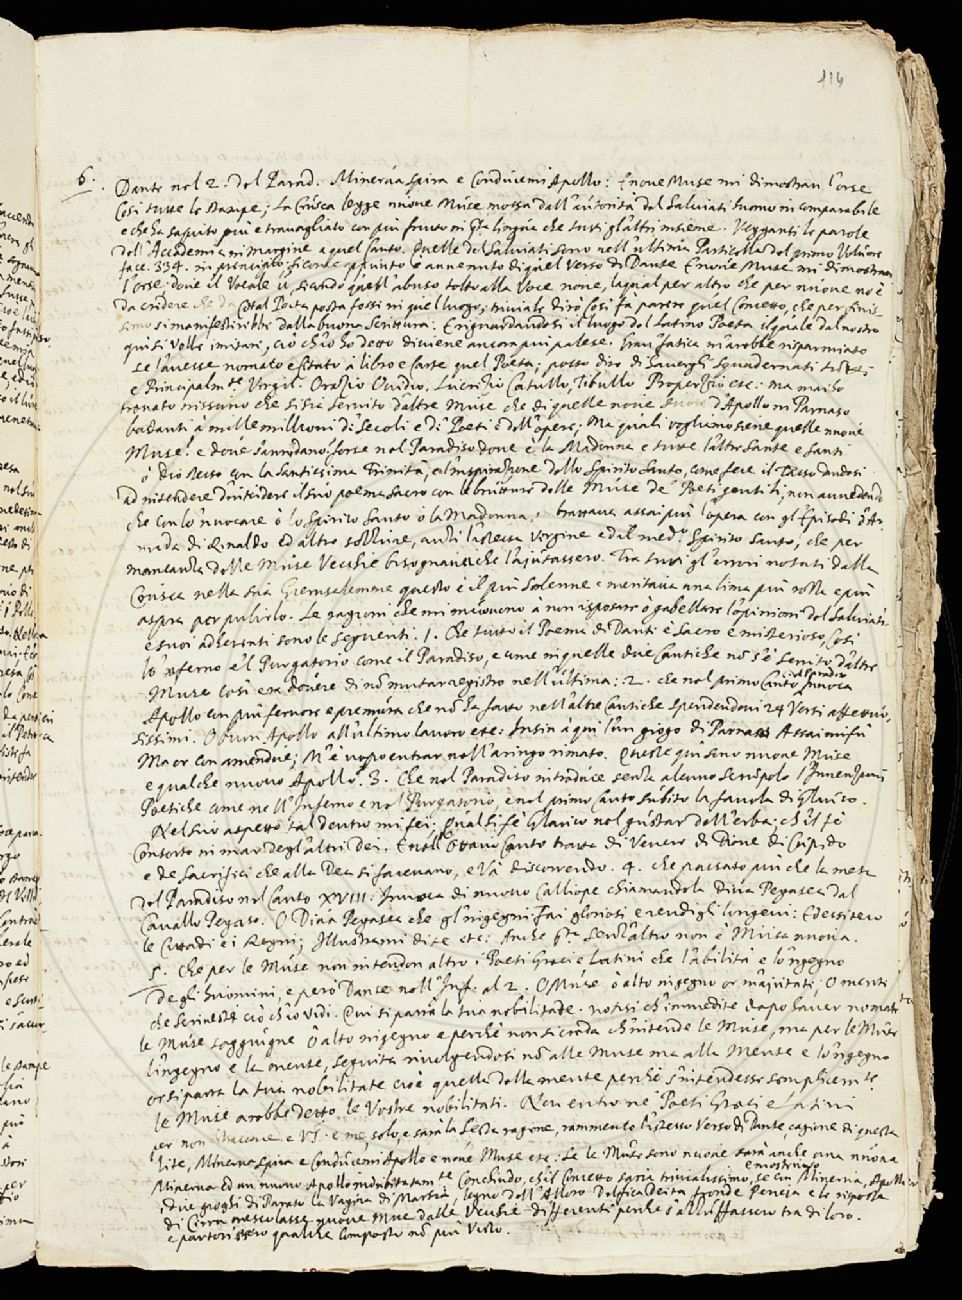 116
6. Dante nel 2. del Parad. Minerva spira e Conducemi Apollo: E nove Muse mi dimostran l'orse
Così tutte le stampe; la Crusca legge nuove Muse mossa dall'autorità del Salviati huomo incomparabile
e che ha saputo più e travagliato con più frutto in qsta lingua che tutti gl'altri insieme. Vegganti le parole
dell'Accademia in margine a quel Canto. Quelle del Salviati sono nell'ultima Particella del primo Volume
face. 334. appunto è avvenuto di quel verso di Dante E nove Muse mi dimostran
l'orse: dove il Vocale u, secondo quell'abuso tolto alla Voce nove, laqual per altro che per nuove no è
da credere che da Cotal Poeta posta fosse in quel luogo; triviale dirò così fà parere quel Concetto, che per
simo si manifesterebbe dalla buona Scrittura. E riguardandosi il luogo del Latino Poeta il quale dal nostro
qui si volle imitare, ciò ch'io ho detto diviene ancora più palese. Gran fatica m'avrebbe risparmiato
se l'avesse nomato e citato à libro e carte quel Poeta; posso dire di havergli squadernati
e Principalmte Virgil. Orazio Ovidio. Lucrezio Catullo, Tibullo Properzio etc: ma mai ho
trovato nissuno che si sia servito d'altre Muse che di quelle nove Suore d'Apollo in Parnaso
badanti a mille millioni di secoli e di Poeti e dell'opere; Ma quali vogliamo siene quelle nuove
Muse? e dove s'annidano? forse nel Paradiso dove è la Madonna e tutte l'altre Sante e Santi
ò Dio stesso con la Santissima Trinità, e l'inspirazione dello Spirito Santo, come fece il Tasso dandosi
ad intendere d'intridere il suo poema sacro con le brutture delle Muse de' Poeti gentili, non avvedendo
che con lo'nvocare ò lo Spirito Santo ò la Madonna, trattava assai più l'opera con gl'Episodi d'Ar
mida di Rinaldo ed altre sollie, anzi l'istessa vergine e dil med.o Spirito Santo; che per
mancanza delle Muse Vecchie bisognava che l'ajutassero. Tra tutti gl'errori notati dalla
Crusca nella sua Gierusalemme questo è il più solenne e meritava una lima più rotta e più
aspra per pulirlo. Le ragioni che mi muovono a non isposare ò gabellare l'opinioni del Salviati
e suoi adherenti sono le seguenti. 1. Che tutto il Poema di Dante è Sacro e misterioso, Così
lo'nferno e'l Purgatorio come il Paradiso, e come in quelle due Cantiche nõ s'è servito d'altre
Muse così era dovere di nõ mutar registro nell'ultima: 2. che nel primo Canto del Paradiso Invoca
Apollo con più fervore e premura che nõ ha fatto nell'altre Cantiche spendendovi 24 Versi affettuo,
sissimi. O buon Apollo all'ultimo lavoro etc: Insin à quì l'un giogo di Parnaso Assai mi fù
Ma or con amendue; M'è uopo entrar nell'aringo rimato. Queste qui sono nuove Muse
e qualche nuovo Apollo? 3. Che nel Paradiso introduce senza alcuno scrupolo l'Invenzioni
Poetiche come nell'Inferno e nel Purgatorio, e nel primo Canto subito la favola di Glauco.
Nel suo aspetto tal dentro mi fei; Qual si fè Glauco nel gustar dell'erba; ch'il fè
Consorto in mar degl'altri Dei. E nell'Ottavo Canto tratta di Venere di Dione di Cupido
e de Sacrifici che alla Dea si facevano, e và discorrendo. 4. che passato più che la meta
del Paradiso nel Canto XVIII: Invoca di nuovo Calliope chiamandola diva Pegasea dal
Cavallo Pegaso. O Diva Pegasea che gl'ingegni Fai gloriosi e rendigli longevi: Ed essi teco
le Cittadi e i Regni; Illustrami di te etc: Anche qta senz'altro non è Musa nuova.
5. Che per le Muse non intendon altro i Poeti Greci e Latini che l'abilità e lo'ngegno
degli huomini, e però Dante nell'Inf: al 2. O Muse ò alto ingegno or m'ajutate; O mente
che scrivesti ciò ch'io vidi. Qui si parrà la tua nobilitade. notisi ch'immediate dopo haver nomate
le Muse soggiugne ò alto ingegno e perchè non si creda ch'intende le Muse, ma per le Muse
l'ingegno e la mente, seguita rivolgendosi nõ alle Muse ma alla Mente e lo'ngegno
or si parrà la tua nobilitate cioè quella della mente perchè s'intendesse semplicemte
le Muse avrebbe detto le Vostre nobilitati. Non entro ne' Poeti Greci e Latini
per non e VS: e me, solo, e sarà la sesta ragione, rammento l'istesso Verso di Dante, cagione di questa
lite, Minerva spira e Conducemi Apollo e nove Muse etc: Se le Muse sono nuove sarà anche una nuova
Minerva ed un nuovo Apollo indubitatamte Conchiudo, ch'il Concetto saria trivialissimo, e mostruoso se con Minerva, Apollo
i due gioghi di Parnaso la Vagina di Marsia, legno dell'Alloro Delfica Deità fronde Peneja e le risposta
di Cirra mescolasse nuove Muse dalle Vecchie differenti perchè s'azzuffassero tra di loro.
e partorissero qualche Composto nõ più Visto.